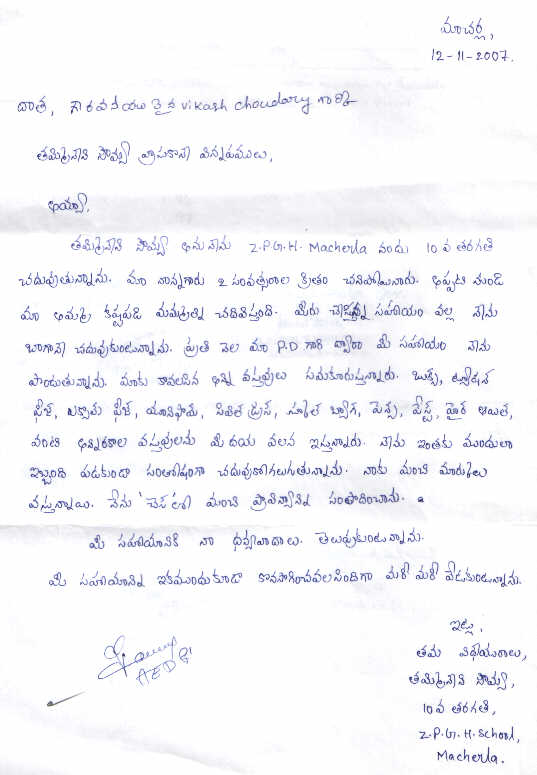 మాచర్ల,
12-11-2007.
దాత, గౌరవనీయులైన vikash choudary గారికి
తమ్మిశెట్టి సౌమ్య వ్రాసుకొనే విన్నపములు,
అయ్యా,
సౌమ్య అను నేను Z.P.G.H. Macherla నందు 10వ తరగతి
చదువుతున్నాను. మా నాన్నగారు 2 సంవత్సరాల క్రితం చనిపోయినారు. అప్పటి నుండి
మా అమ్మ కష్టపడి మమ్మల్ని చదివిస్తుంది. మీరు చేస్తున్న సహాయం వల్ల నేను
బాగానే చదువుకుంటున్నాను. ప్రతి నెల మా P.D గారి ద్వారా మీ సహాయం నేను
పొందుతున్నాను. మాకు కావలసిన అన్ని వస్తువులు సమకూరుస్తున్నారు. బుక్స్, ట్యూషన్
ఫీజ్, ఎగ్జామ్ ఫీజ్, యూనిఫామ్, సివిల్ డ్రస్, స్కూల్ బ్యాగ్, పెన్స్, పేస్ట్, హైర్ ఆయిల్,
వంటి అన్నిరకాల వస్తువులను మీ దయ వలన ఇస్తున్నారు. నేను ఇంతకు ముందులా
ఇబ్బంది పడకుండా సంతోషంగా చదువుకోగలుగుతున్నాను. నాకు మంచి మార్కులు
వస్తున్నాయి. నేను 'చెస్'లో మంచి ప్రావీణ్యాన్ని సంపాదించాను.
మీ సహాయానికి నా ధన్యవాదాలు. తెలుపుకుంటున్నాను.
మీ సహాయాన్ని ఇకముందుకూడా కొనసాగించవలసిందిగా మరీ మరీ వేడుకుంటున్నాను.
ఇట్లు,
తమ విధేయురాలు,
సౌమ్య,
10వ తరగతి,
Z.P.G.H. School,
Macherla.